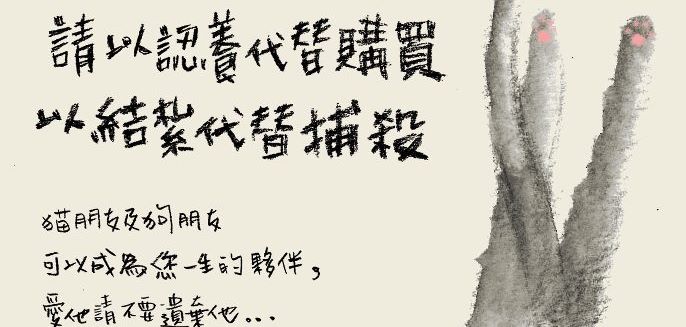 請以認養代替購買
以結紮代替捕殺
貓朋友及狗朋友
可以成為您一生的夥伴,
愛他請不要遺棄他...